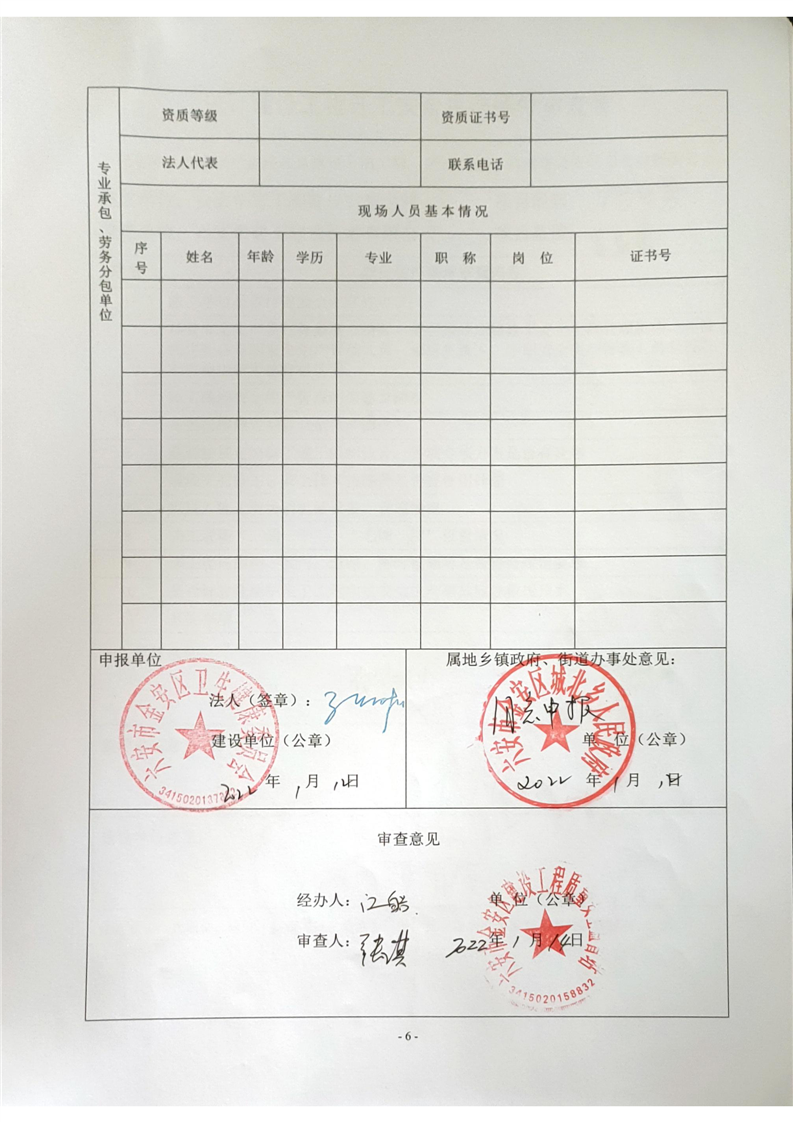 专业承包、劳务分包单位
资质等级 资质证书号
法人代表 联系电话
现场人员基本情况
序号 姓名 年龄 学历 专业 职 称 岗 位 证书号
申报单位
法人（签章）：
建设单位（公章）
2022 年 1 月 12日
六安市金安区卫生健康委员会
属地乡镇政府、街道办事处意见：
同意申报
单 位（公章）
2022 年 1 月 日
六安市金安区城北乡人民政府
审查意见
经办人：江
单 位（公章
审查人：张淇
2022年 1 月 14日
六安市金安区建设工程质量
3415020158832
- 6 -